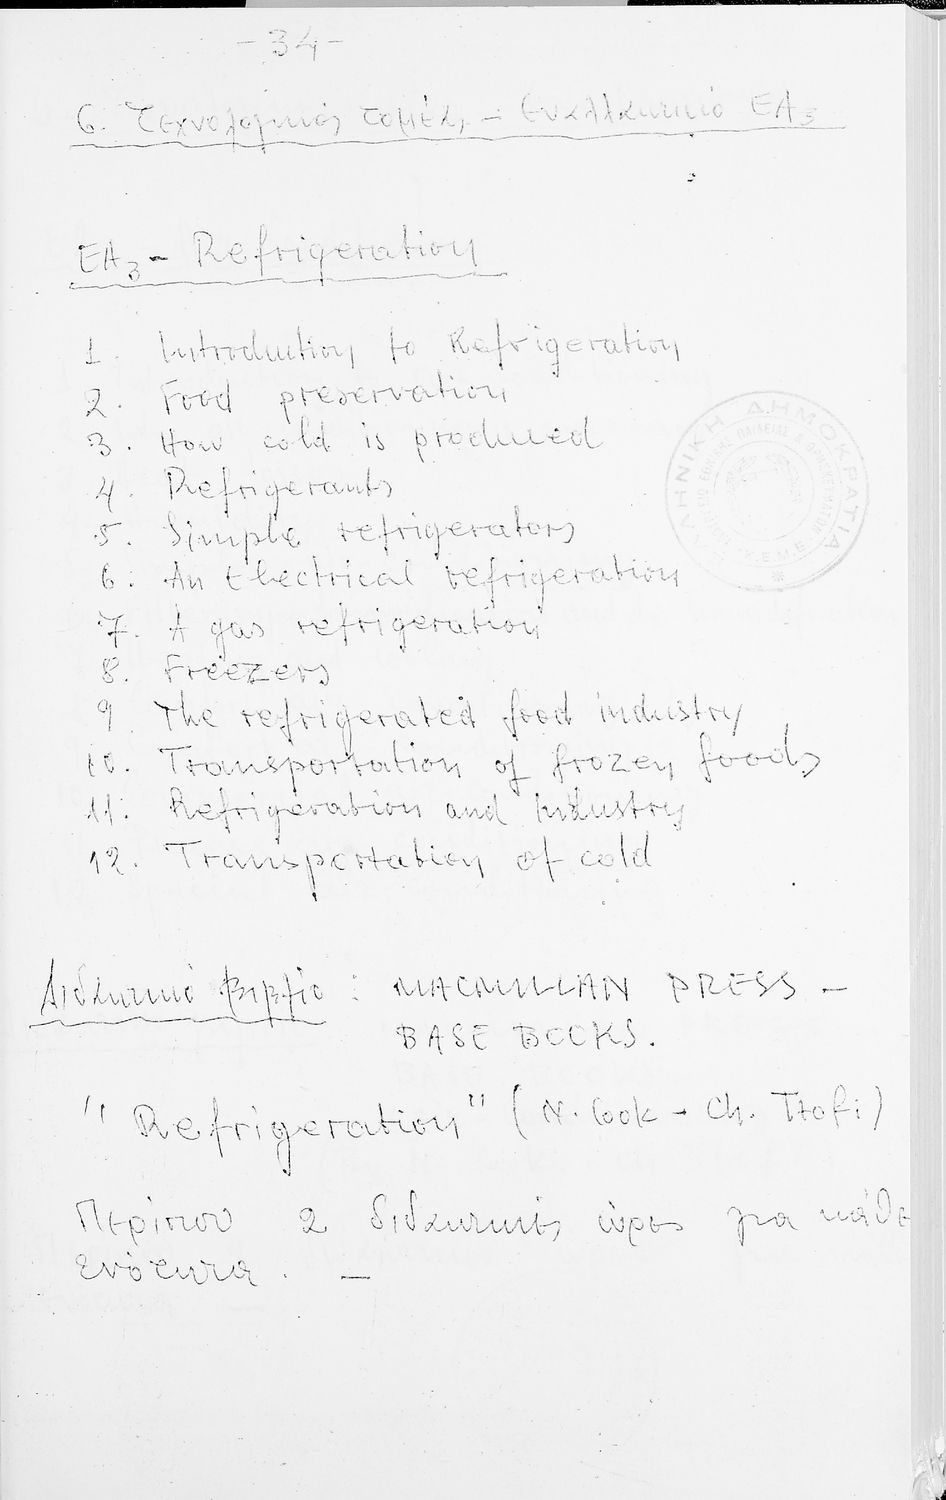 -34-
6. Τεχνολογικός τομέας - Εναλλακτικό ΕΑ3
ΕΑ3 - Refrigeration
1. Introduction to Refrigeration
2. Food preservation
3. How cold is produced
4. Refrigerants
5. Simple refrigerators
6. An Electrical refrigeration
7. A gas refrigeration
8. Freezers
9 The refrigerated food industry
10. Transportation of frozen foods
11. Refrigeration and Industry
12. Transportation of cold
ΕΛΛΗΝΙΚΗ ΔΗΜΟΚΡΑΤΙΑ
Διδακτικό βιβλίο : MACMILLAN PRESS -
BASE BOOKS.
"Refrigeration" (N. Cook - Ch. Tzofi)
Περίπου 2 διδακτικές ώρες για κάθε
ενότητα. -